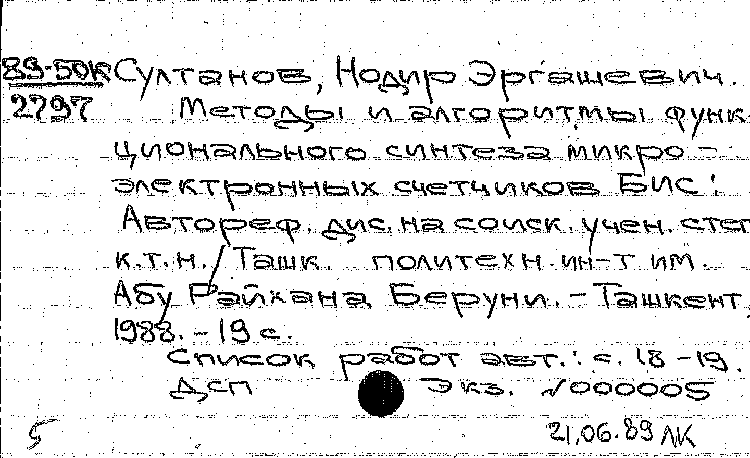 89-50К Султанов, Нодир Эргашевич.
2797 Методы и алгоритмы функ-
ционального синтеза микро-
электронных счетчиков БИС:
Автореф. дис. на соиск. учен. степ
к.т.н. / Ташк. политехн. ин-т им.
Абу Райхана Беруни. - Ташкент,
1988. - 19 с.
Список работ авт.: с. 18-19.
ДСП Экз. №000005
5 21.06.89 ЛК